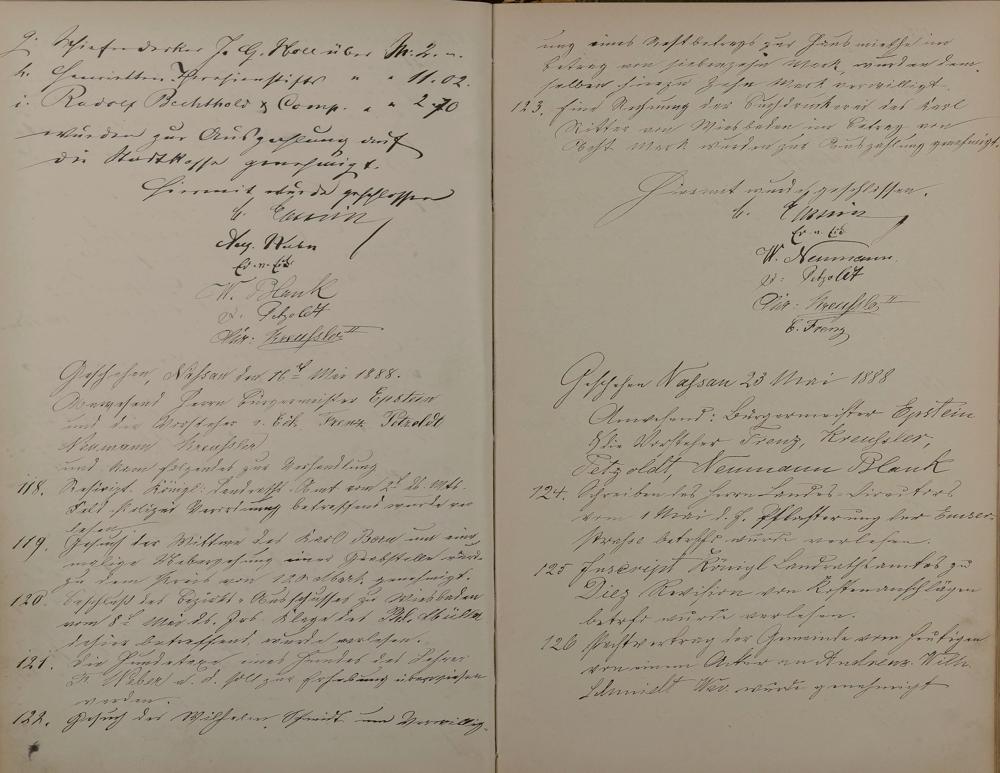 g. Schieferdecker J. G. Noll über M. 2. –
h. Henrietten Theresienstifts " " 11.02.
i. Rudolf Bechthold & Comp. " " 2.70
wurden zur Auszahlung auf
die Stadtkasse genehmigt.
Hiermit wurde geschlossen
W. Blank
Petzoldt
Kreußler II
Geschehen, Nassau den 16t Mai 1888.
Anwesend Herrn Bürgermeister Epstein
und die Vorsteher Franz Petzoldt
Neumann Kreußler
und kam folgendes zur Verhandlung
118. Rescript Königl: Landraths Amt vom
Feld Polizei Verordnung betreffend wurde ver
lesen.
119. Gesuch der Wittwe des Karl Born um
malige Uebersetzung einer Grabstelle wurde
zu dem Preis von 120 Mark genehmigt.
120. Beschluß des Bezirks-Ausschusses zu Wiesbaden
vom 8t Mai Klage des Phl.
dahier betreffend wurde verlesen.
121. Die Hundetaxe eines Hundes des Lehrer
Weber a. d. soll zur Erhebung überwiesen
werden.
122. Gesuch des Wilhelm Schmidt um Verwillig-
ung eines Restbetrags zur Hausmiethe im
Betrag von siebenzehn Mark, wurden dem-
selben hierzu Zehn Mark verwilligt.
123. Eine Rechnung der Buchdruckerei des Karl
Ritter von Wiesbaden im Betrag von
Acht Mark wurden zur Auszahlung genehmigt.
Hiermit wurde geschlossen.
W. Neumann.
Petzoldt
Kreußler II
Franz
Geschehen Nassau 23 Mai 1888
Anwesend: Bürgermeister Epstein
& die Vorsteher Franz, Kreußler,
Petzoldt, Neumann Blank
124. Schreiben des Herrn Landes-Directors
vom 1 Mai d. J. Pflasterung der Emser-
straße betrfd. wurde verlesen.
125 Inscript Königl Landrathsamtes zu
Diez Revision von Kostenanschlägen
betrfd wurde verlesen.
126 Pachtvertrag der Gemeinde vom heutigen
von einem Acker an Wilh.
Schmidt Ww. wurde genehmigt